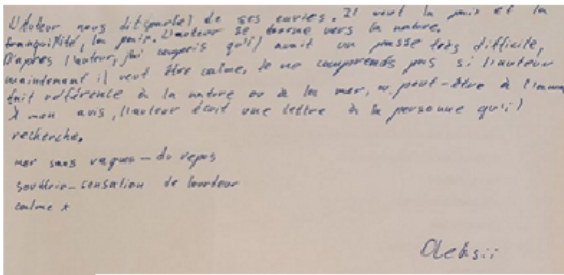 L'auteur nous dit (parle) de ses envies. Il veut la paix et la
tranquilité, la paix. L'auteur se tourne vers la nature.
D'après l'auteur, j'ai compris qu'il avait un passé très difficile,
maintenant il veut être calme. Je ne comprends pas si l'auteur
fait référence à la nature ou à la mer, ou peut-être à
À mon avis, l'auteur écrit une lettre à la personne qu'il
recherche.
mer sans vagues - du repos
souffrir - sensation de lourdeur
calme *
Oleksii